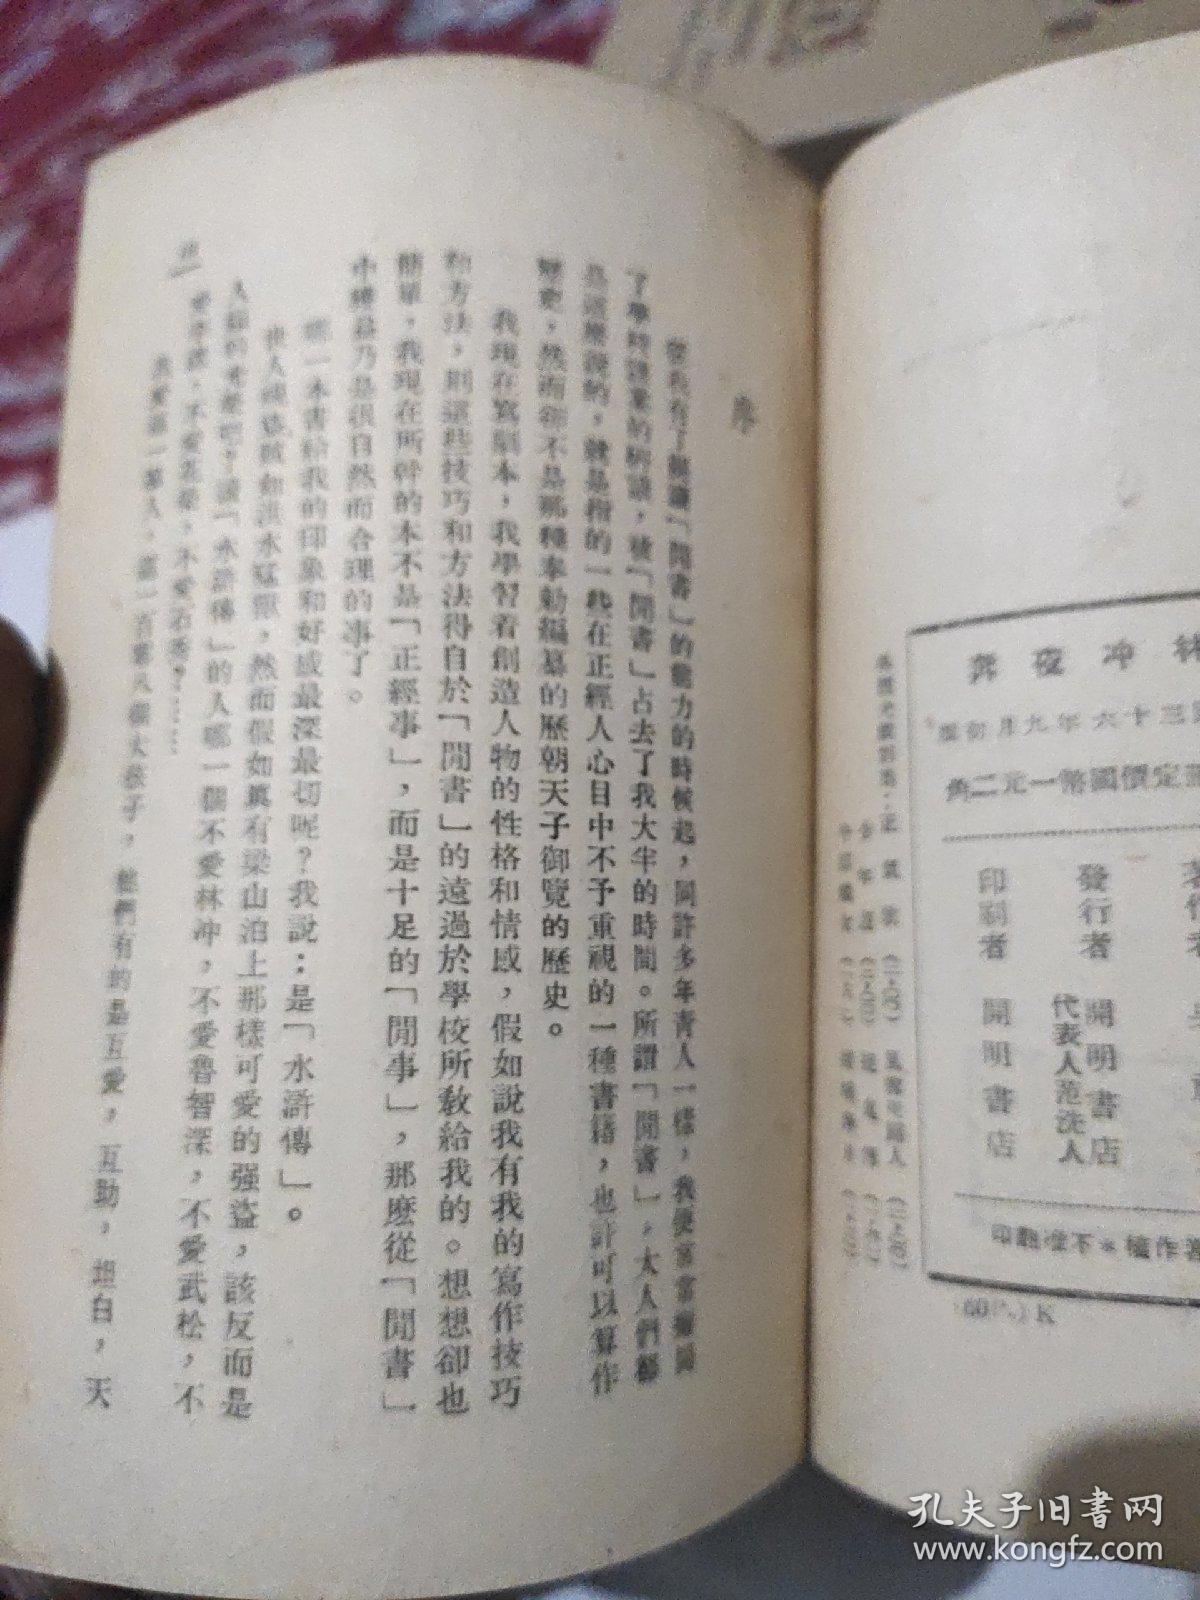 林冲夜奔
三十六年九月初版
定價國幣一元二角
發行者 開明書店
代表人范洗人
印刷者 開明書店
著作權＊不准翻印
(60P.) K
序
」的能力的時候起，同許多年青人一樣，我便常常
「閒書」占去了我大半的時間。所謂「閒書」，大人們
是這麼說的，就是指的一些在正經人心目中不予重視的一種書籍，也許可以算作
歷史，然而卻不是那種奉勅編纂的歷朝天子御覽的歷史。
我現在寫劇本，我學習着創造人物的性格和情感，假如說我有我的寫作技巧
和方法，則這些技巧和方法得自於「閒書」的遠過於學校所教給我的。想想卻也
簡單，我現在所幹的本不是「正經事」，而是十足的「閒事」，那麼從「閒書」
中獲益乃是很自然而合理的事了。
哪一本書給我的印象和好感最深最切呢？我說：是「水滸傳」。
世人視盜賊如洪水猛獸，然而假如眞有梁山泊上那樣可愛的強盜，該反而是
人類的光榮吧？讀「水滸傳」的人哪一個不愛林冲，不愛魯智深，不愛武松，不
愛李逵，不愛燕靑，不愛石秀？……
，他們有的是互愛，互助，坦白，天
孔夫子旧书网
www.kongfz.com